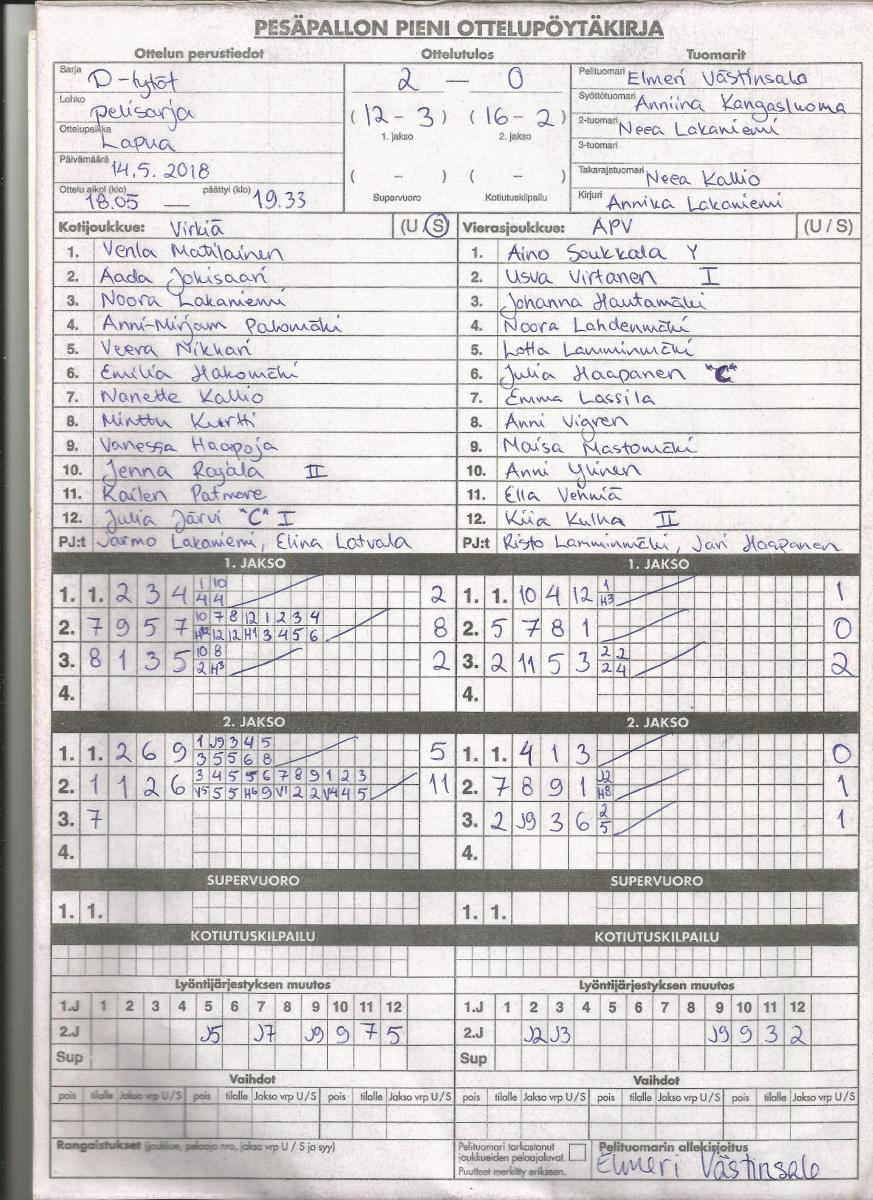 PESÄPALLON PIENI OTTELUPÖYTÄKIRJA
Ottelun perustiedot Ottelutulos Tuomarit
Sarja D-tytöt
Lohko pelisarja
Ottelupaikka Lapua
Päivämäärä 14.5. 2018
Ottelu alkoi (klo) 18.05 — päättyi (klo) 19.33
2 — 0
(12 - 3) (16 - 2)
1. jakso 2. jakso
( - ) ( - )
Supervuoro Kotiutuskilpailu
Pelituomari Elmeri Västinsalo
Syöttötuomari Anniina Kangasluoma
2-tuomari Neea Lakaniemi
3-tuomari
Takarajatuomari Neea Kallio
Kirjuri Annika Lakaniemi
Kotijoukkue: Virkiä (U / S)
1. Venla Matilainen
2. Aada Jokisaari
3. Noora Lakaniemi
4. Anni-Mirjam Palomäki
5. Veera Nikkari
6. Emilia Hakomäki
7. Nanette Kallio
8. Minttu Kurtti
9. Vanessa Haapoja
10. Jenna Rajala II
11. Kailen Patmore
12. Julia Järvi "C" I
PJ:t Jarmo Lakaniemi, Elina Latvala
Vierasjoukkue: APV (U / S)
1. Aino Soukkala Y
2. Usva Virtanen I
3. Johanna Hautamäki
4. Noora Lahdenmäki
5. Lotta Lamminmäki
6. Julia Haapanen "C"
7. Emma Lassila
8. Anni Vigren
9. Maisa Mastomäki
10. Anni Ylinen
11. Ella Vehniä
12. Kiia Kulha II
PJ:t Risto Lamminmäki, Jari Haapanen
1. JAKSO
1. 1. 2 3 4 1 10 2
4 4
2. 7 9 5 7 10 7 8 12 1 2 3 4 8
H12 12 12 H1 3 4 5 6
3. 8 1 3 5 10 8 2
2 H3
4.
1. JAKSO
1. 1. 10 4 12 1 1
H3
2. 5 7 8 1 0
3. 2 11 5 3 2 2 2
2 4
4.
2. JAKSO
1. 1. 2 6 9 1 J9 3 4 5 5
3 5 5 6 8
2. 1 1 2 6 3 4 5 5 6 7 8 9 1 2 3 11
V5 5 5 H6 9 V1 2 2 V4 4 5
3. 7
4.
2. JAKSO
1. 1. 4 1 3 0
2. 7 8 9 1 J2 1
H8
3. 2 J9 3 6 2 1
5
4.
SUPERVUORO SUPERVUORO
1. 1. 1. 1.
KOTIUTUSKILPAILU KOTIUTUSKILPAILU
Lyöntijärjestyksen muutos Lyöntijärjestyksen muutos
1.J 1 2 3 4 5 6 7 8 9 10 11 12 1.J 1 2 3 4 5 6 7 8 9 10 11 12
2.J J5 J7 J9 9 7 5 2.J J2 J3 J9 9 3 2
Sup Sup
Vaihdot Vaihdot
pois tilalle Jakso vrp U/S pois tilalle Jakso vrp U/S pois tilalle Jakso vrp U/S pois tilalle Jakso vrp U/S pois tilalle Jakso vrp U/S pois tilalle Jakso vrp U/S
Rangaistukset (joukkue, pelaaja nro, jakso vrp U / S ja syy)
Pelituomari tarkastanut
joukkueiden pelaajaluvat.
Puutteet merkitty erikseen.
Pelituomarin allekirjoitus
Elmeri Västinsalo